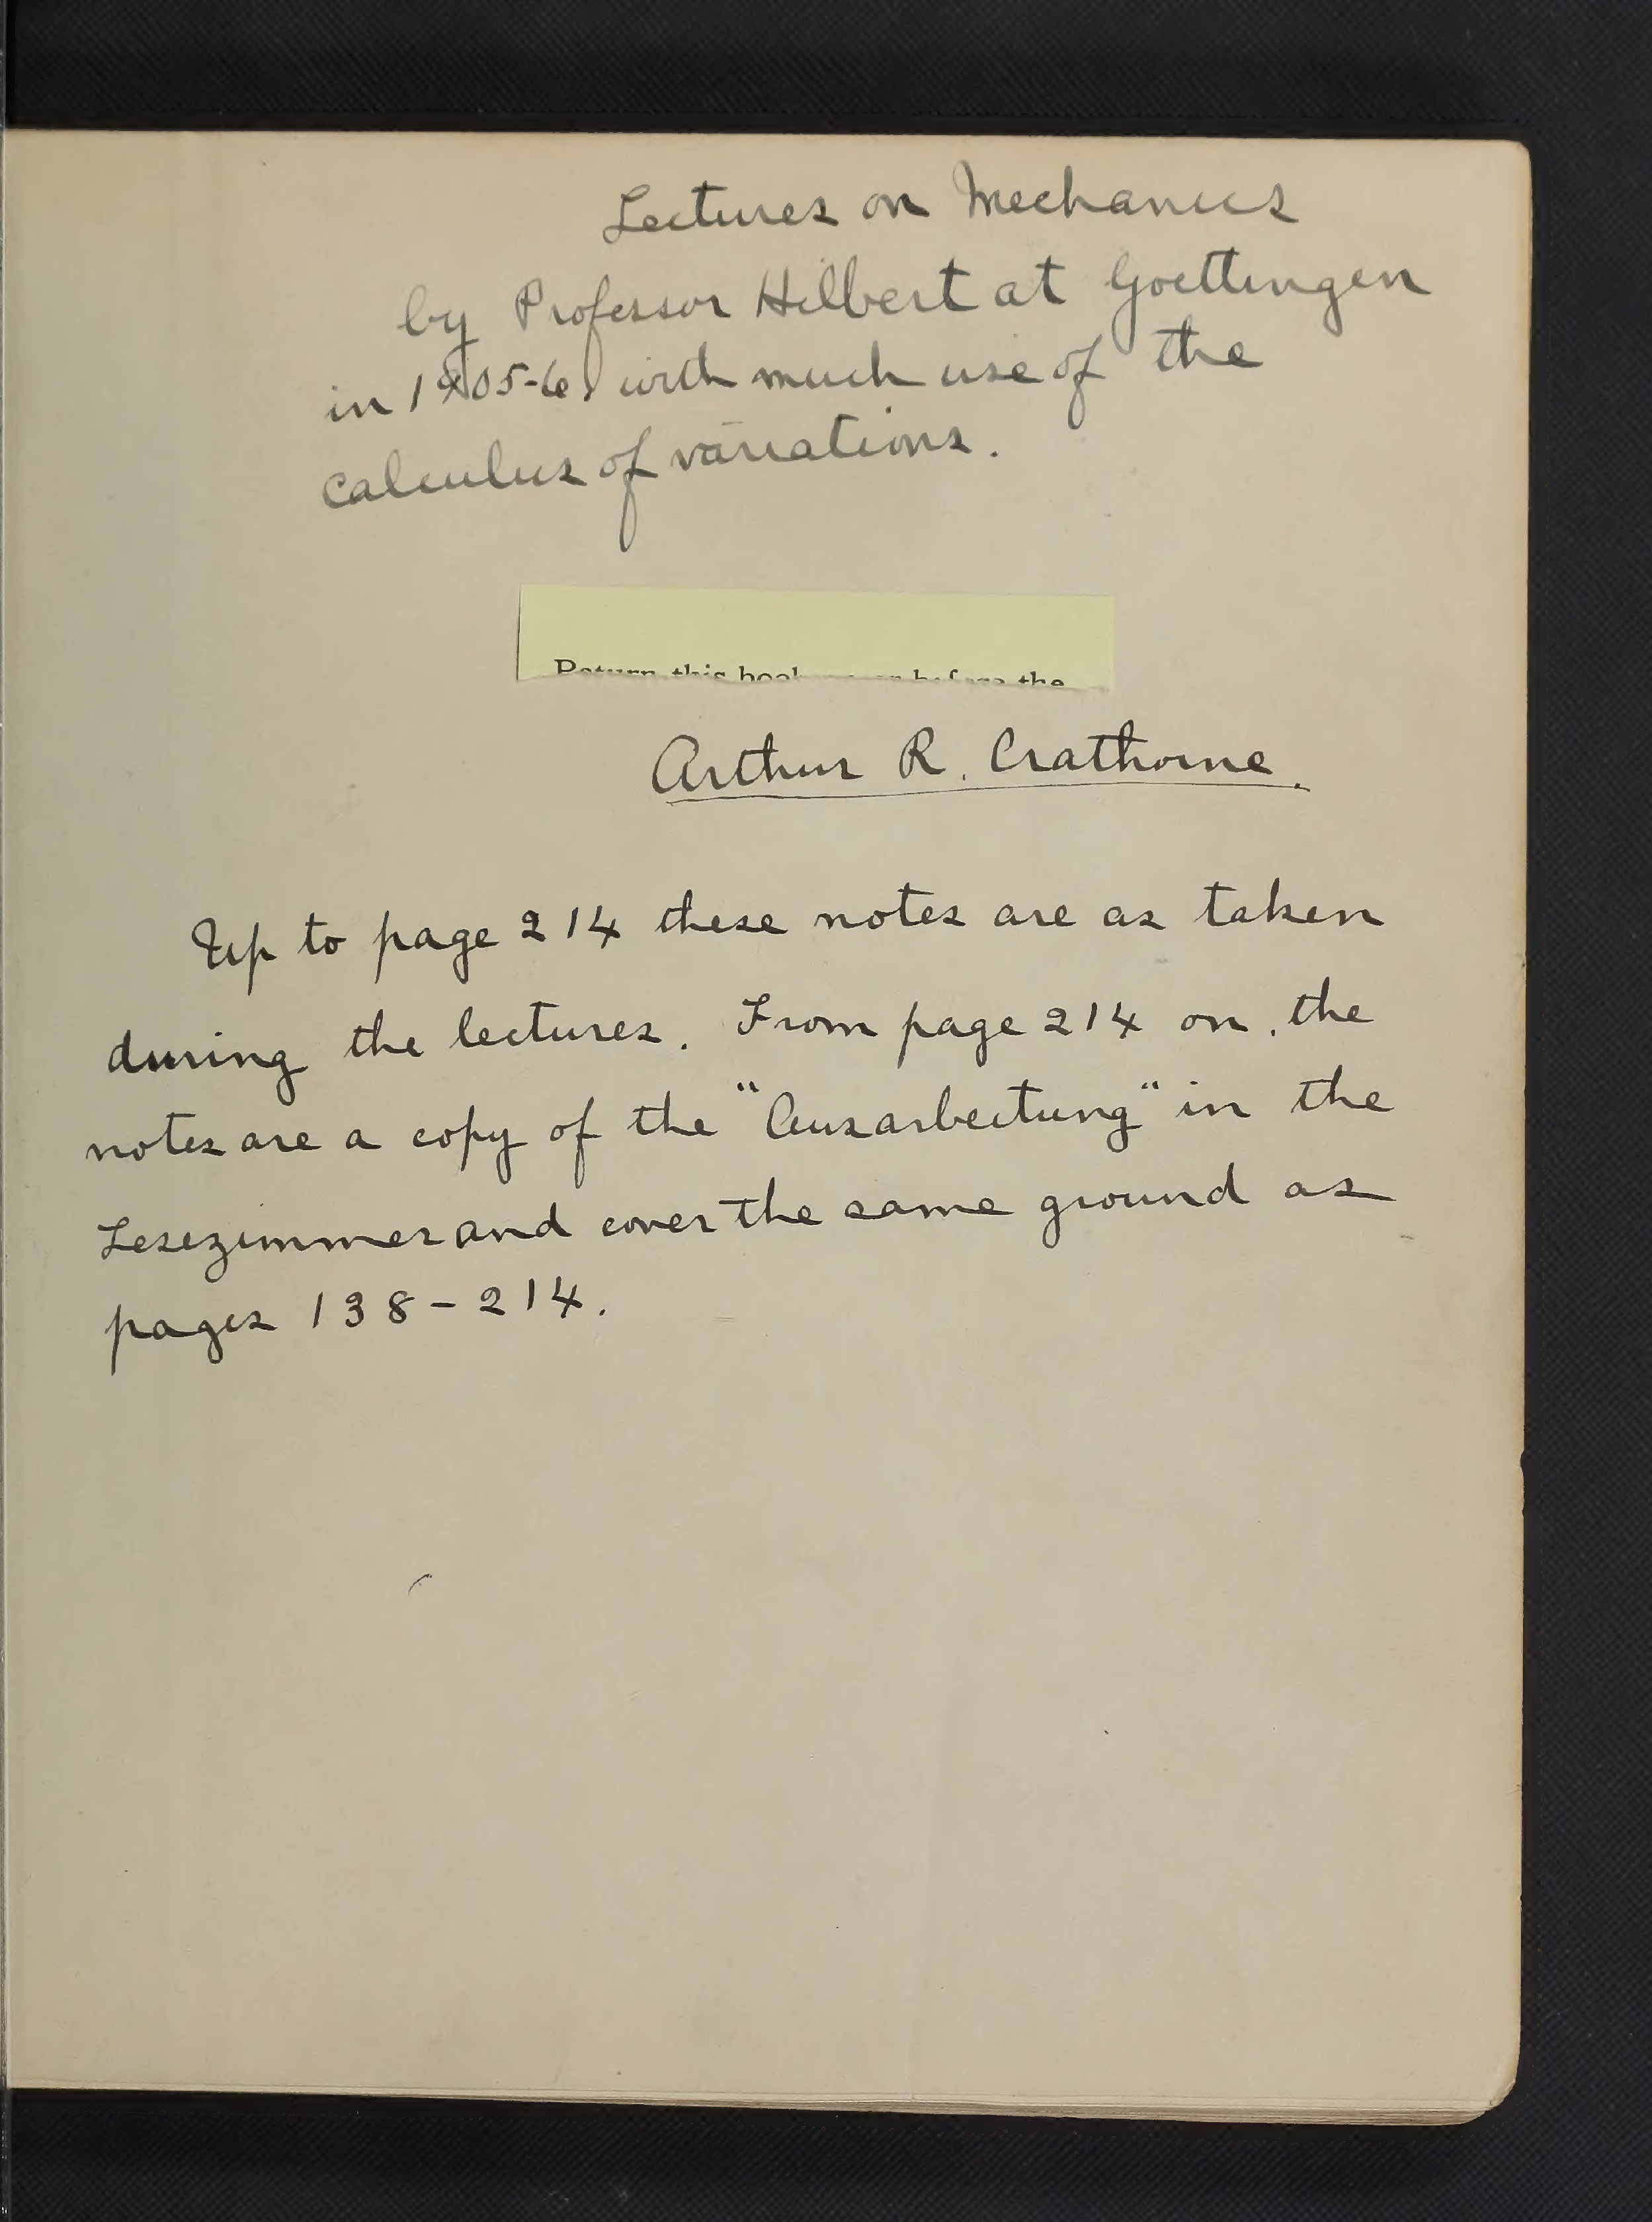 Lectures on Mechanics
by Professor Hilbert at Goettingen
in 1905-6, with much use of the
calculus of variations.
Return this book on or before the
Arthur R. Crathorne.
Up to page 214 these notes are as taken
during the lectures. From page 214 on, the
notes are a copy of the "Ausarbeitung" in the
Lesezimmer and cover the same ground as
pages 138-214.